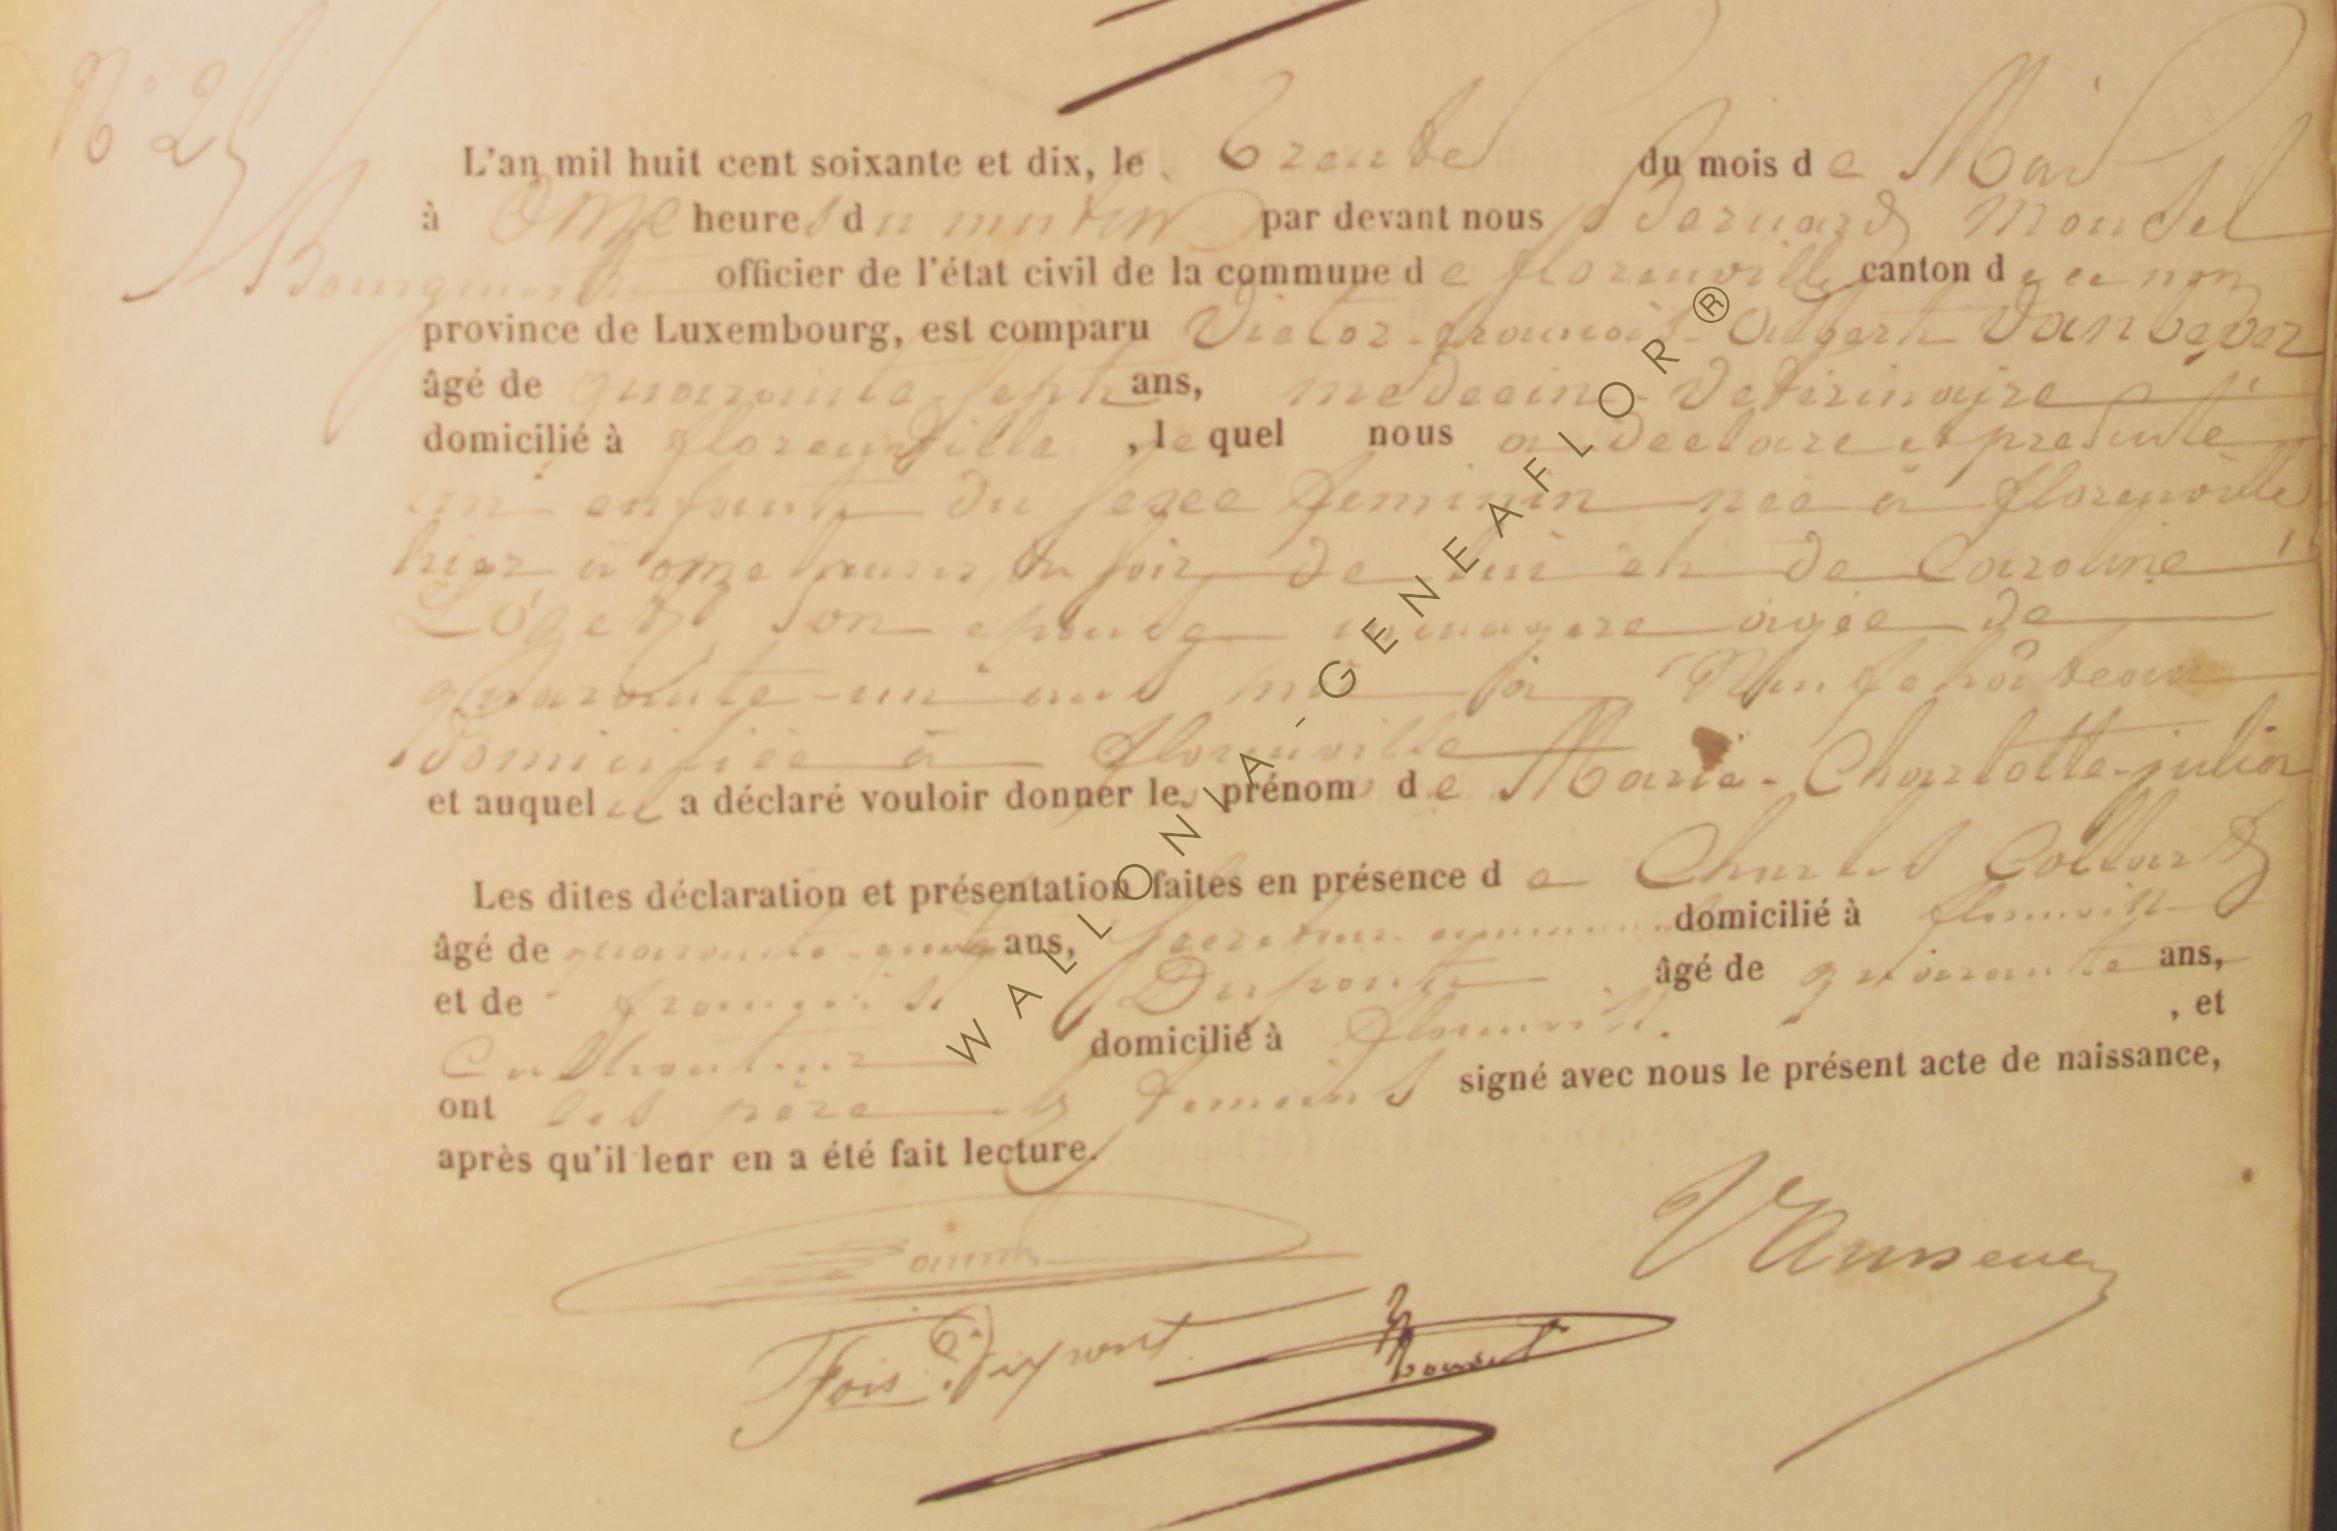 N° 25
L'an mil huit cent soixante et dix, le Trente du mois de Mars
à onze heures du matin par devant nous Bernard Mousel
Bourgmestre officier de l'état civil de la commune de florenville canton de ce nom
province de Luxembourg, est comparu Victor-françois- Vanbever
âgé de quarante-sept ans, médecin-vétérinaire
domicilié à florenville , lequel nous a déclaré et présenté
un enfant du sexe féminin née à florenville
hier à onze heures du soir de lui et de Caroline
son épouse ménagère agée de
quarante-un ans née à Neufchâteau
domiciliée à florenville
et auquel il a déclaré vouloir donner les prénoms de Marie-Charlotte-julia
Les dites déclaration et présentation faites en présence de Charles Collard
âgé de quarante-cinq ans, secrétaire communal domicilié à florenville
et de françois Dupont âgé de quarante ans,
Cultivateur domicilié à florenville. , et
ont les père et témoins signé avec nous le présent acte de naissance,
après qu'il leur en a été fait lecture.
Vanbever
Fois Dupont
Mousel
WALLONIA-GENEAFLOR®